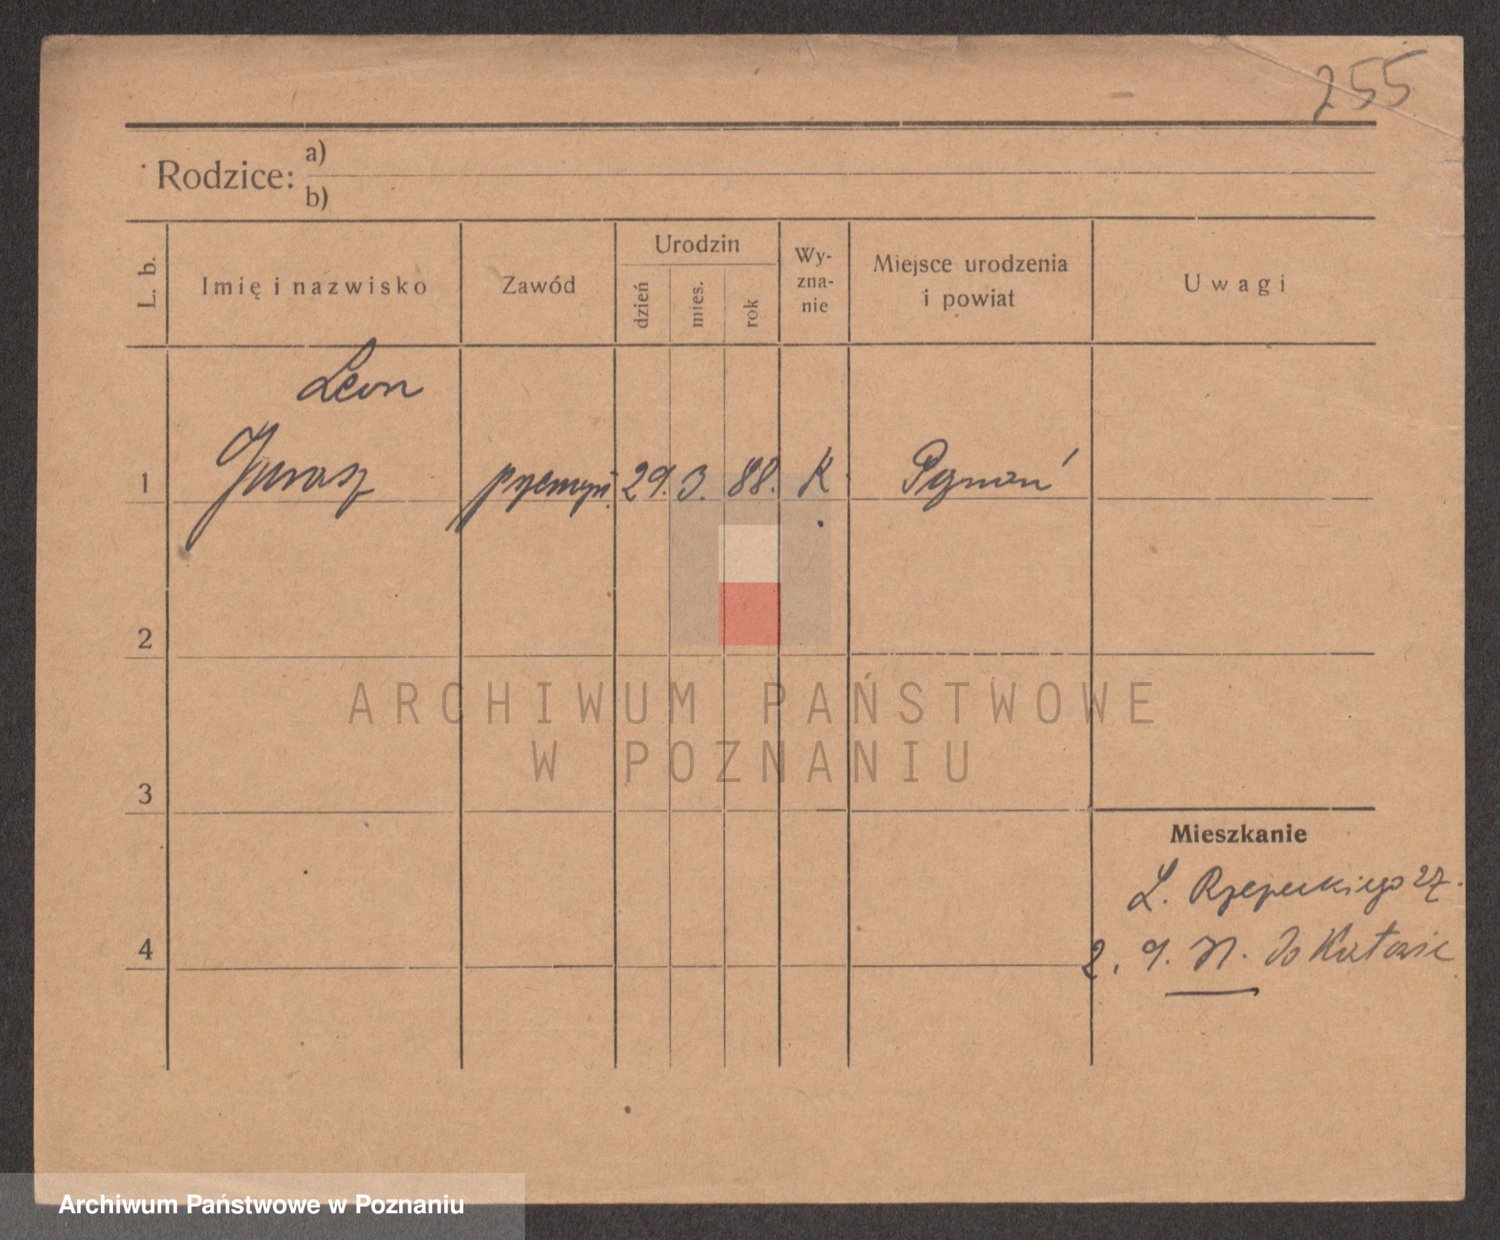 255
Rodzice: a)
b)
L. b. Imię i nazwisko Zawód Urodzin dzień mies. rok Wy-zna-nie Miejsce urodzenia i powiat Uwagi
Leon
1 Jurasz 29. 3. 88. K. Poznań
2
ARCHIWUM PAŃSTWOWE
W POZNANIU
3
Mieszkanie
L. Rzepeckiego 27.
4
2. 9. do Katowic
Archiwum Państwowe w Poznaniu